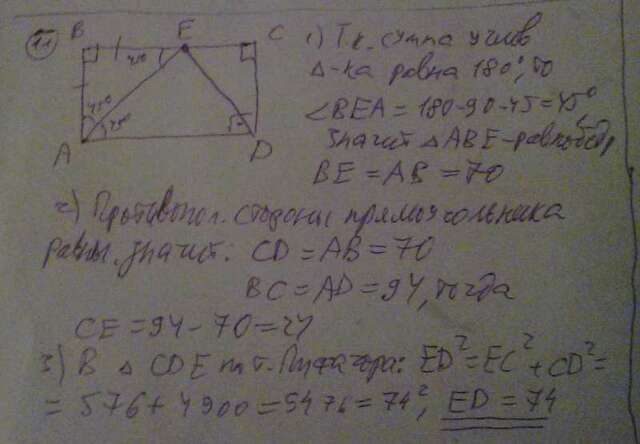 11 B E C
45°
45°
45°
A D
1) Т.к. сумма углов
Δ-ка равна 180°, то
∠BEA = 180-90-45=45°
значит ΔABE-равнобедр
BE = AB = 70
2) Противопол. стороны прямоугольника
равны. значит: CD = AB = 70
BC = AD = 94, тогда
CE = 94 - 70 = 24
3) В Δ CDE по т. Пифагора: ED² = EC² + CD² =
= 576 + 4900 = 5476 = 74², ED = 74